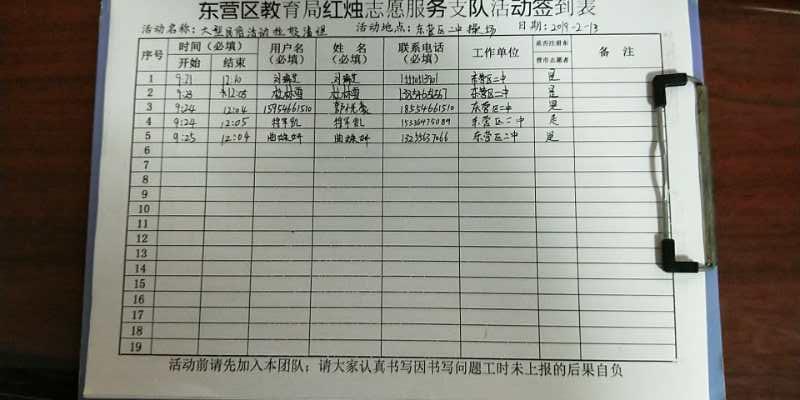 东营区教育局红烛志愿服务支队活动签到表
活动名称：大型民俗活动垃圾清理 活动地点：东营区二中操场 日期：2019-2-13
序号 时间（必填） 用户名（必填） 姓名（必填） 联系电话（必填） 工作单位 是否注册东营市志愿者 备注
开始 结束
1 9:21 12:10 东营区二中 是
2 9:23 12:05 东营区二中 是
3 9:24 12:04 15954661510 18554661510 东营区二中 是
4 9:24 12:05 15336475089 东营区二中 是
5 9:25 12:04 东营区二中 是
6
7
8
9
10
11
12
13
14
15
16
17
18
19
活动前请先加入本团队；请大家认真书写因书写问题工时未上报的后果自负